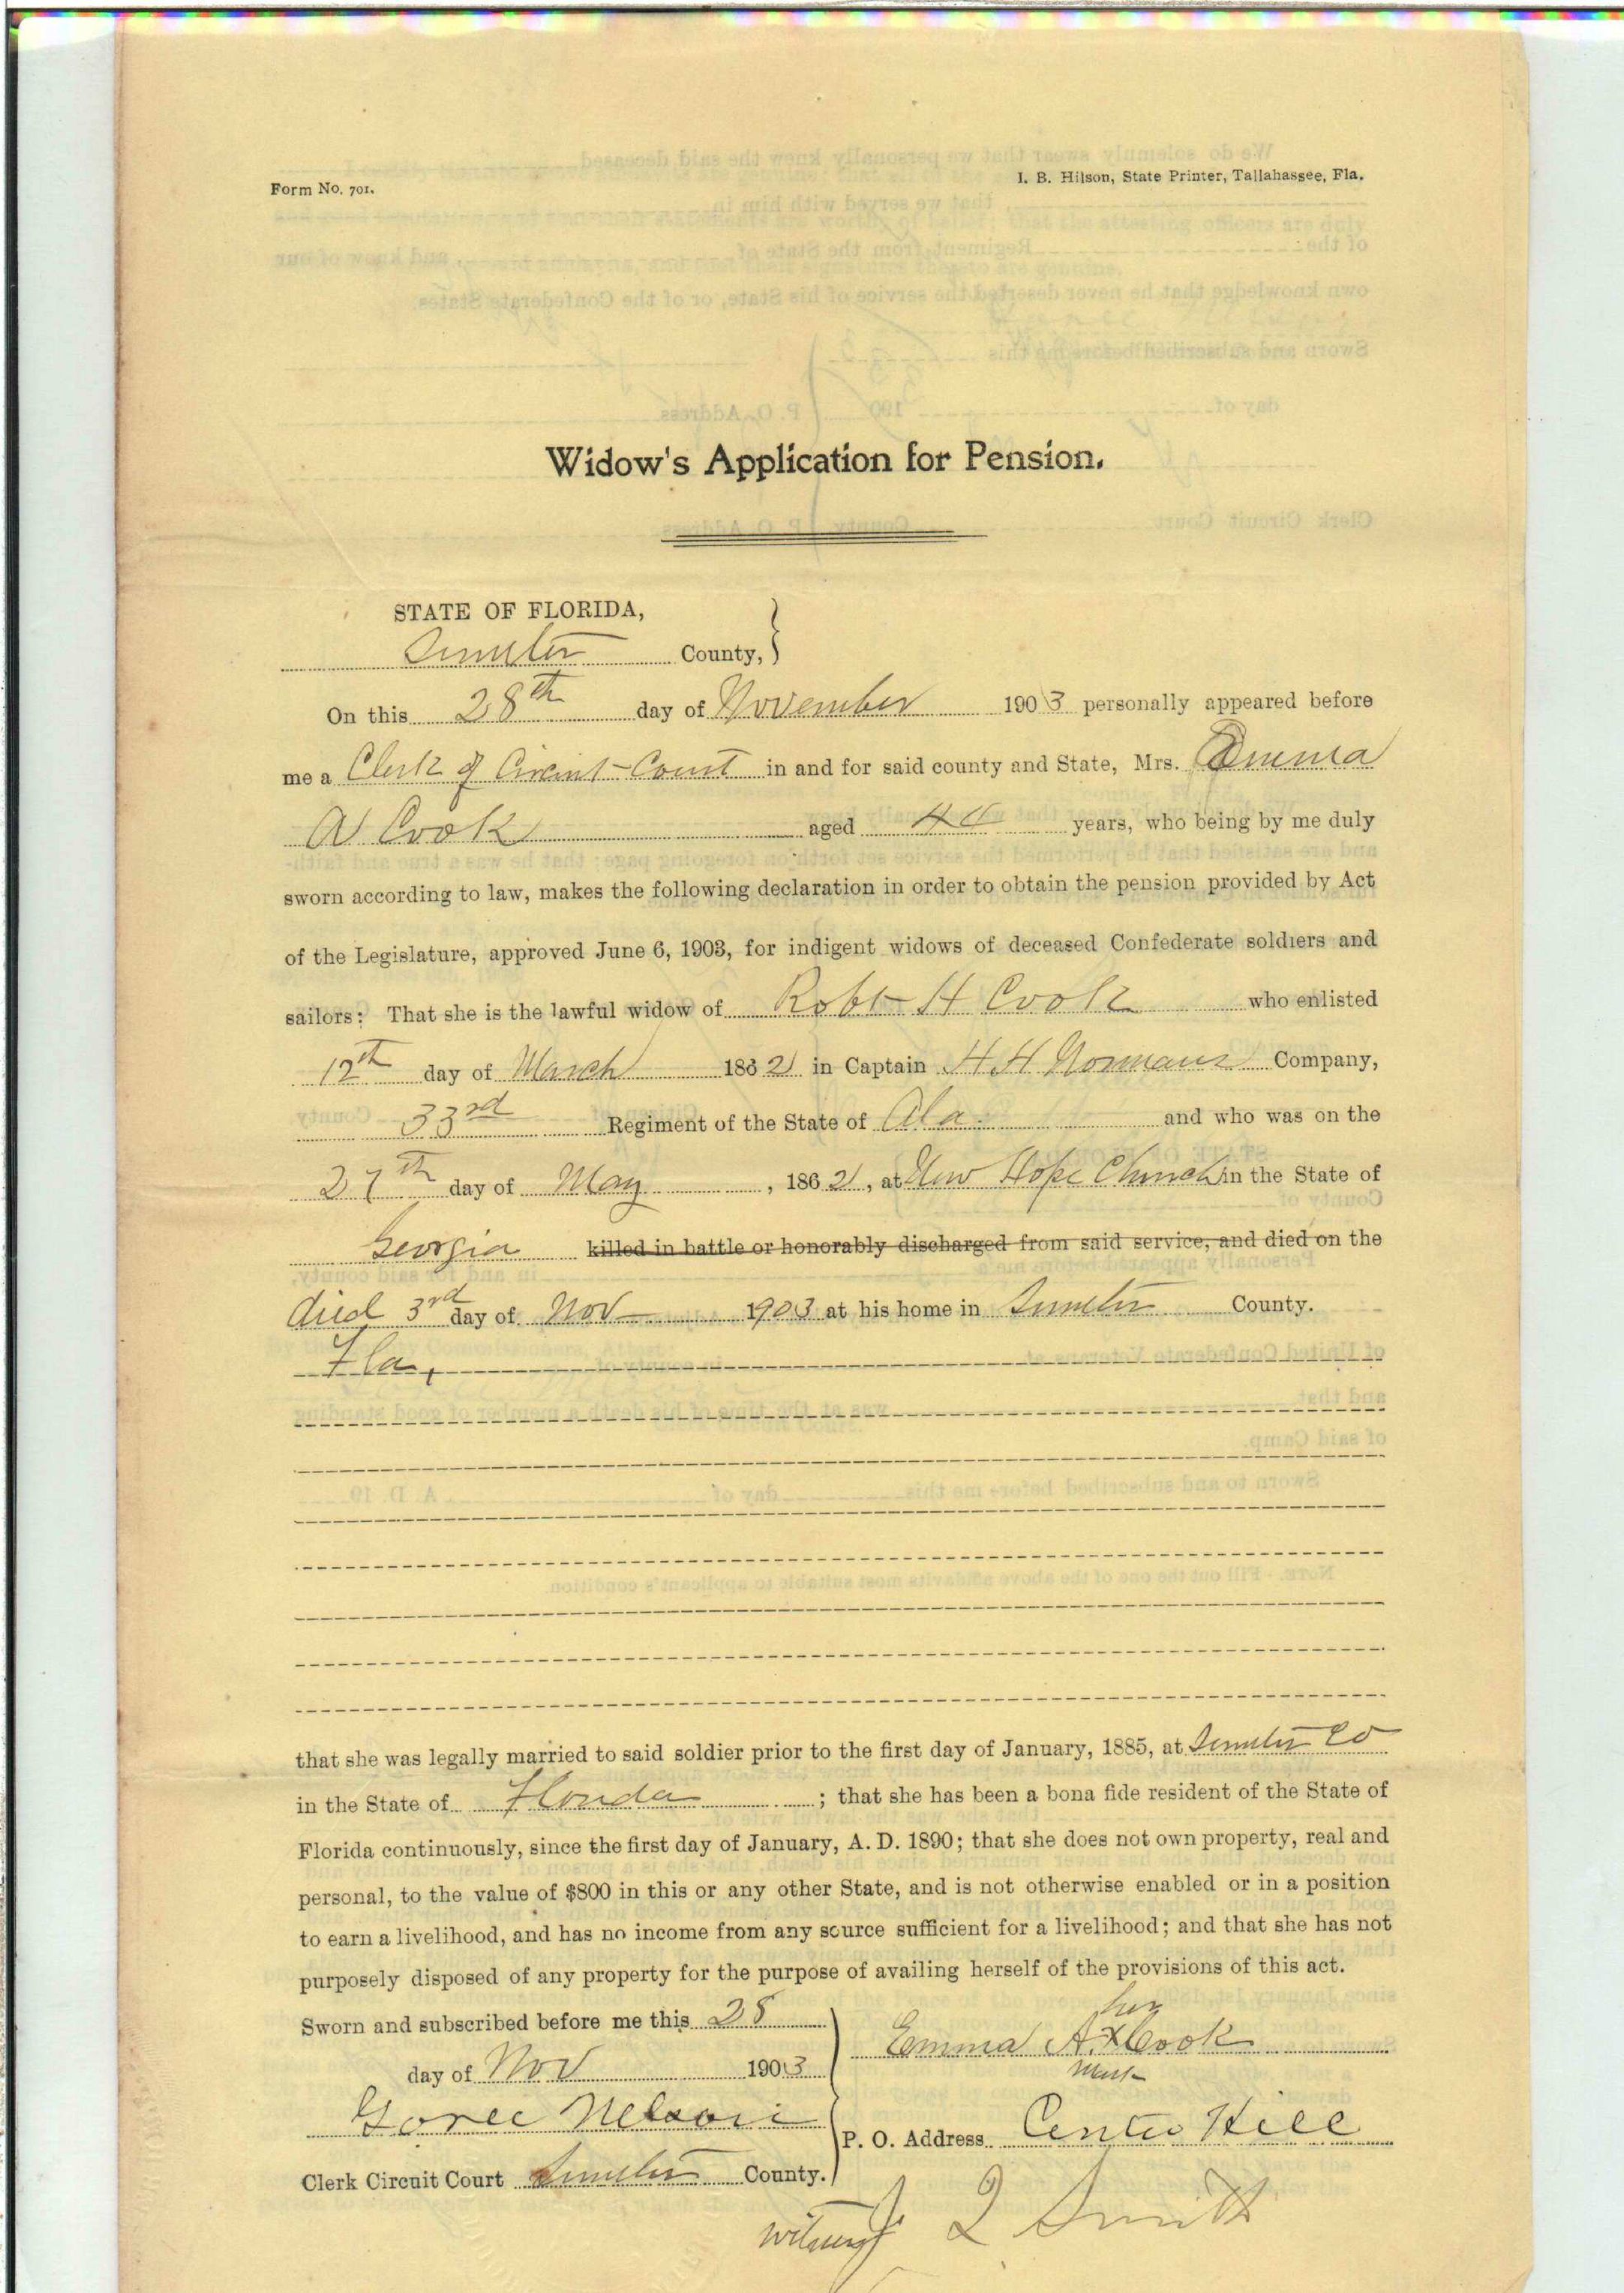 Form No. 701.
I. B. Hilson, State Printer, Tallahassee, Fla.
Widow's Application for Pension.
STATE OF FLORIDA,
Sumter County,
On this 28th day of November 1903 personally appeared before
me a Clerk of Circuit Court in and for said county and State, Mrs. Emma
A Cook aged years, who being by me duly
sworn according to law, makes the following declaration in order to obtain the pension provided by Act
of the Legislature, approved June 6, 1903, for indigent widows of deceased Confederate soldiers and
sailors: That she is the lawful widow of Robt H Cook who enlisted
12th day of March 1862 in Captain H H Normans Company,
33rd Regiment of the State of Ala. and who was on the
27th day of May, 1862, at New Hope Church in the State of
Georgia killed in battle or honorably discharged from said service, and died on the
died 3rd day of Nov 1903 at his home in Sumter County.
Fla,
that she was legally married to said soldier prior to the first day of January, 1885, at Sumter Co
in the State of Florida; that she has been a bona fide resident of the State of
Florida continuously, since the first day of January, A. D. 1890; that she does not own property, real and
personal, to the value of $800 in this or any other State, and is not otherwise enabled or in a position
to earn a livelihood, and has no income from any source sufficient for a livelihood; and that she has not
purposely disposed of any property for the purpose of availing herself of the provisions of this act.
Sworn and subscribed before me this 28
day of Nov 1903
her
Emma A. x Cook
mark
Nelson
P. O. Address Center Hill
Clerk Circuit Court Sumter County.
witness J Q Smith